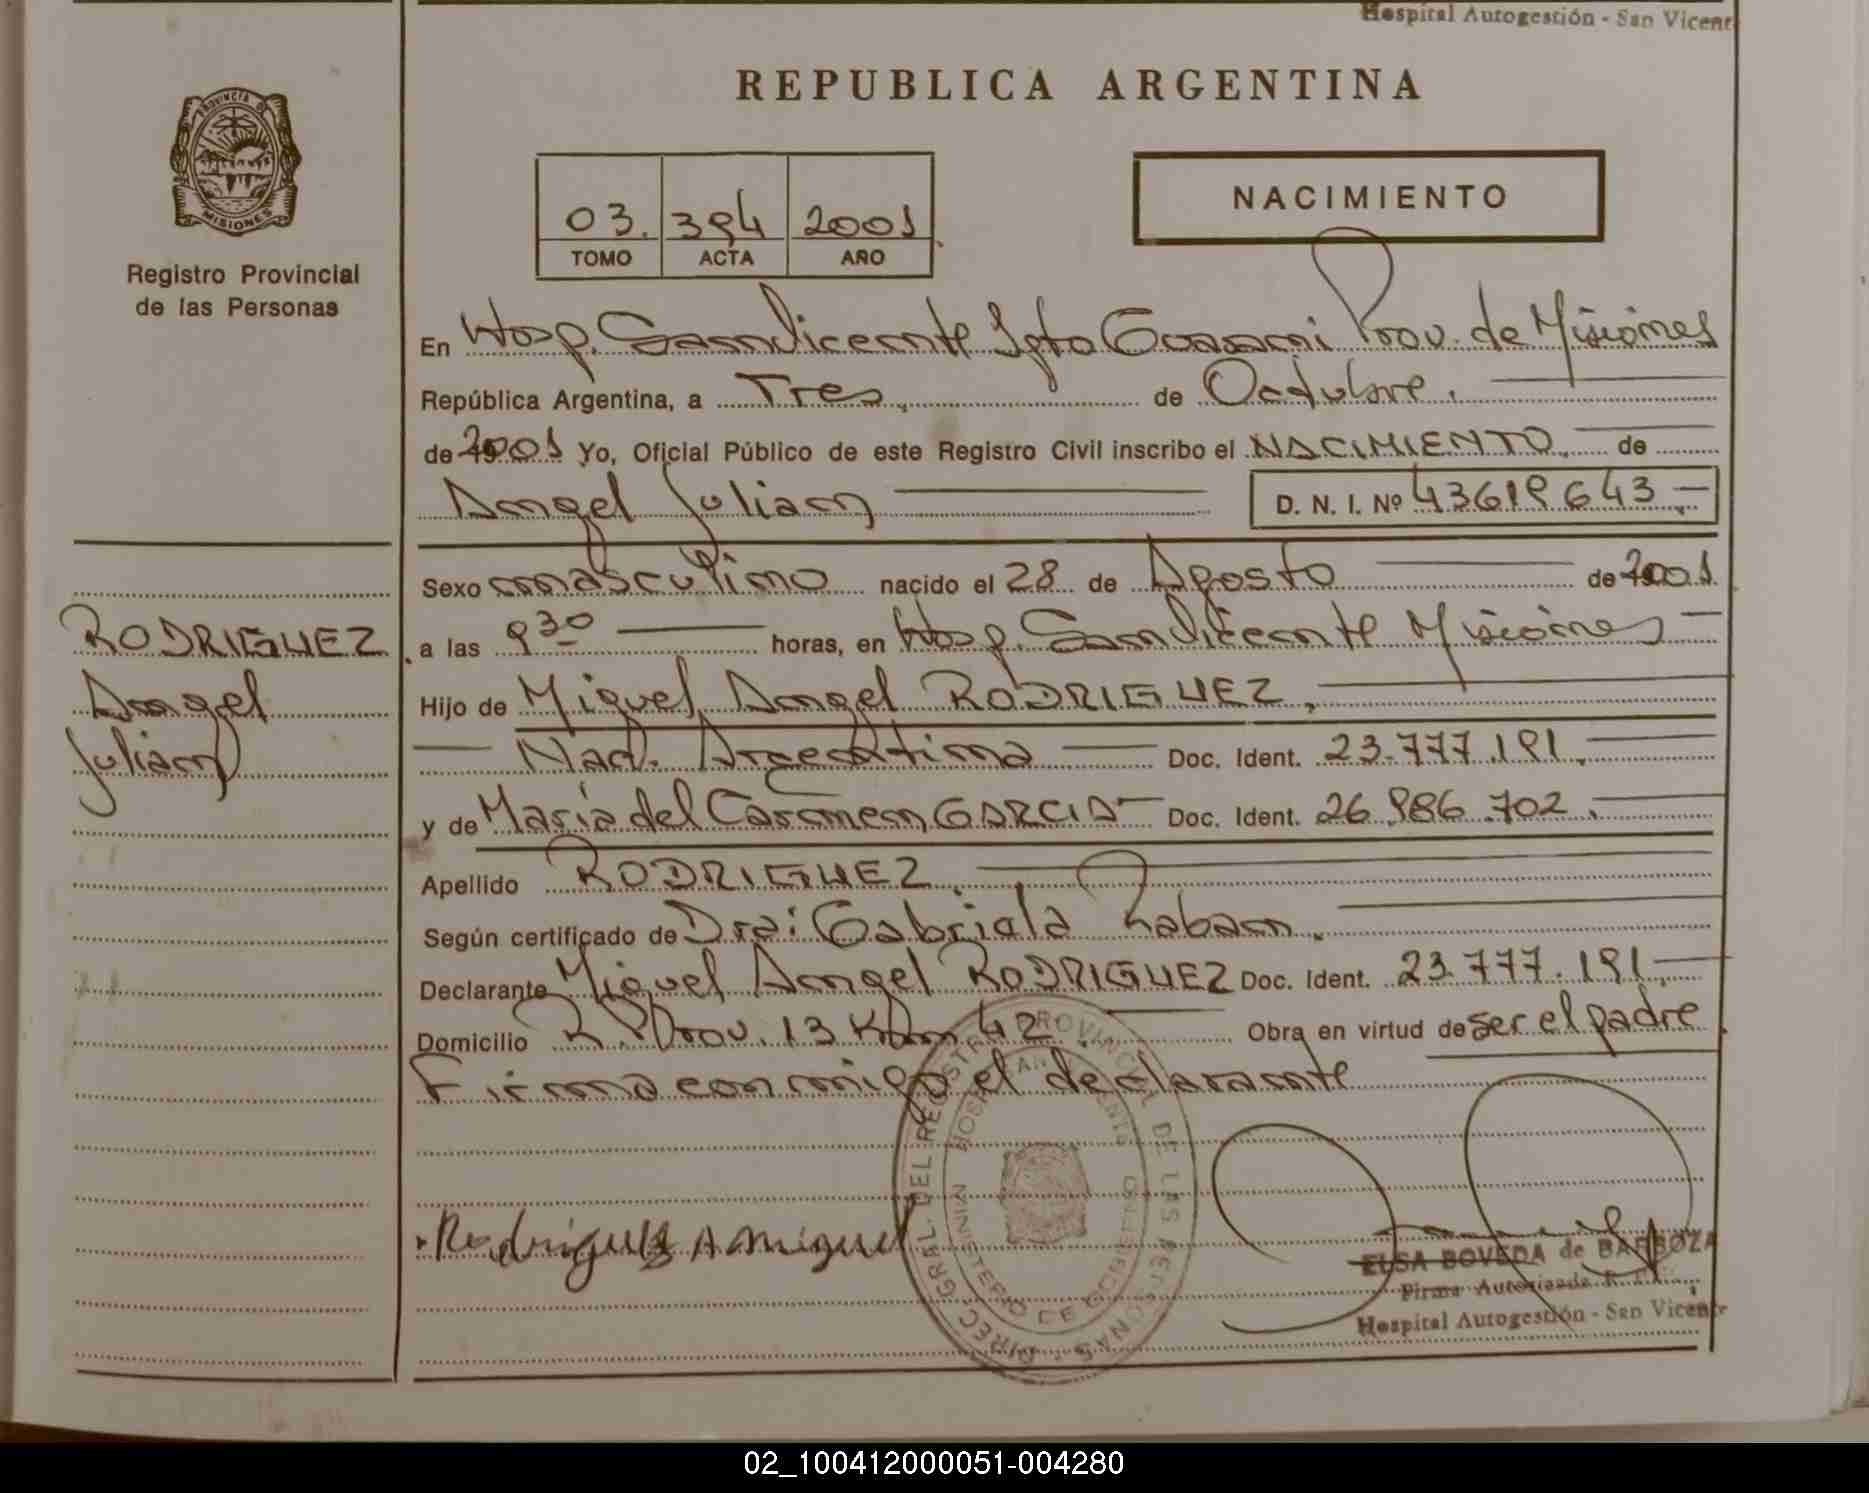 Hospital Autogestión - San Vicent
REPUBLICA ARGENTINA
PROVINCIA DE
MISIONES
Registro Provincial
de las Personas
NACIMIENTO
03. 394 2001
TOMO ACTA AÑO
En Hosp. San Vicente Dpto Guarani Prov. de Misiones
República Argentina, a Tres, de Octubre.
de 2001 Yo, Oficial Público de este Registro Civil inscribo el NACIMIENTO, de
Angel Julian
D. N. I. Nº 43619643.-
Sexo masculino nacido el 28 de Agosto de 2001
a las 9 30 horas, en Hosp. San Vicente Misiones
Hijo de Miguel Angel RODRIGUEZ,
Nac. Argentina Doc. Ident. 23.777.191.
y de María del Carmen GARCIA Doc. Ident. 26.986.702.
Apellido RODRIGUEZ.
Según certificado de Dra: Gabriela Raban.
Declarante Miguel Angel RODRIGUEZ Doc. Ident. 23.777.191.
Domicilio R. Prov. 13 Km 42. Obra en virtud de ser el padre
Firma conmigo el declarante
RODRIGUEZ
Angel
Julian
Rodriguez A Miguel
DIREC. GRAL. DEL REGISTRO PROVINCIAL DE LAS PERSONAS
HOSP. SAN VICENTE
MINISTERIO DE GOBIERNO
ELSA BOVEDA de BARBOZA
Firma Autorizada R.
Hospital Autogestión - San Vicente
02_100412000051-004280